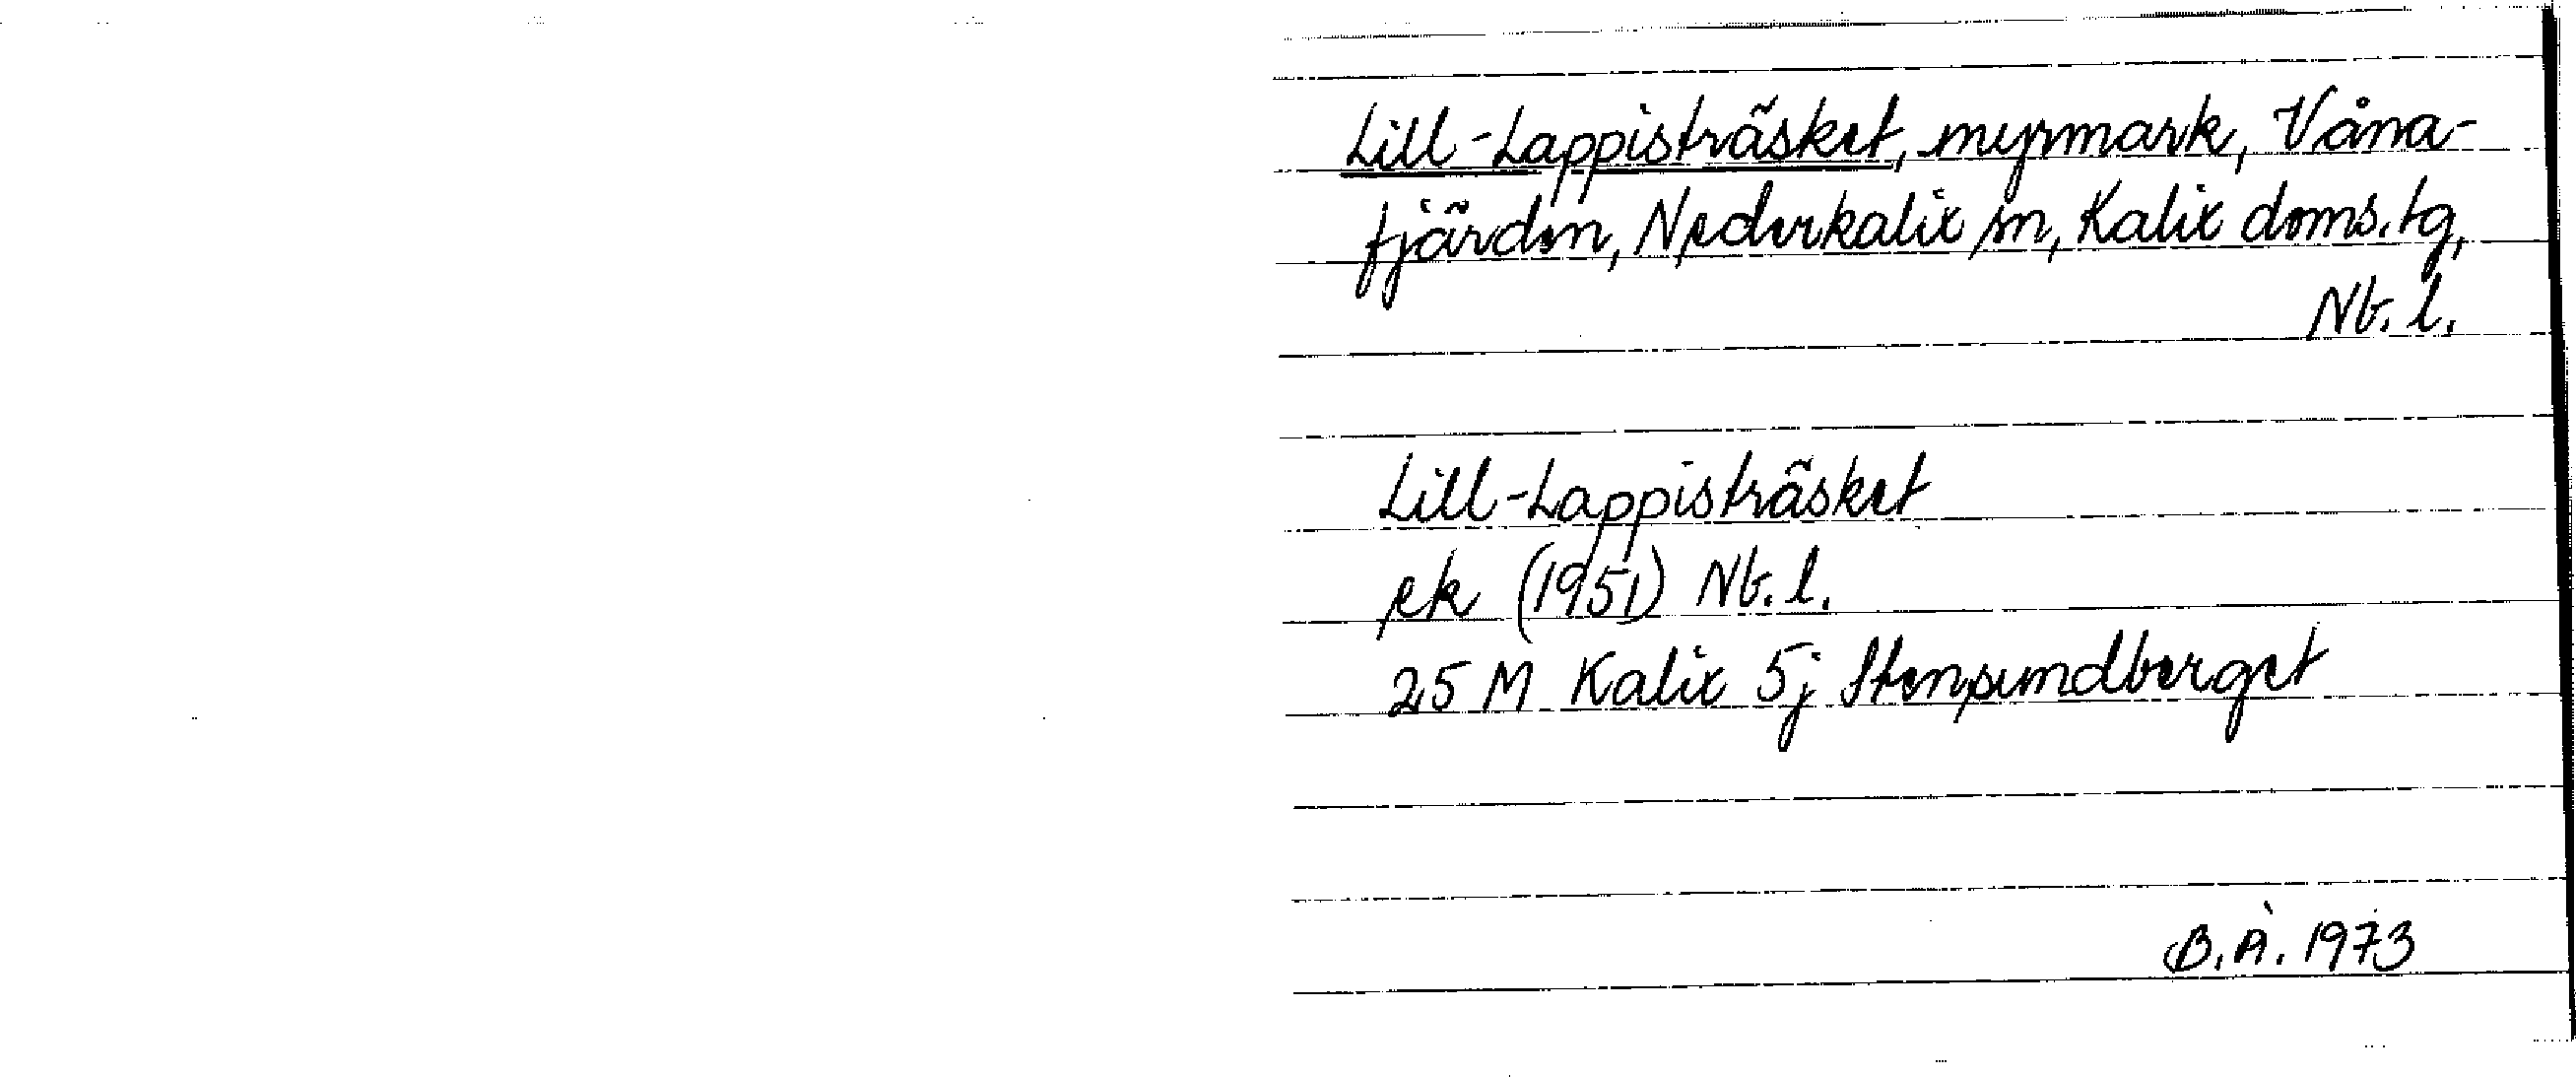 Lill-Lappisträsket, myrmark, Våna-
fjärden, Nederkalix sn, Kalix doms. tg,
Nb. l.
Lill-Lappisträsket
ek (1951) Nb. l.
25 M Kalix 5j Stensundberget
B.Å. 1973